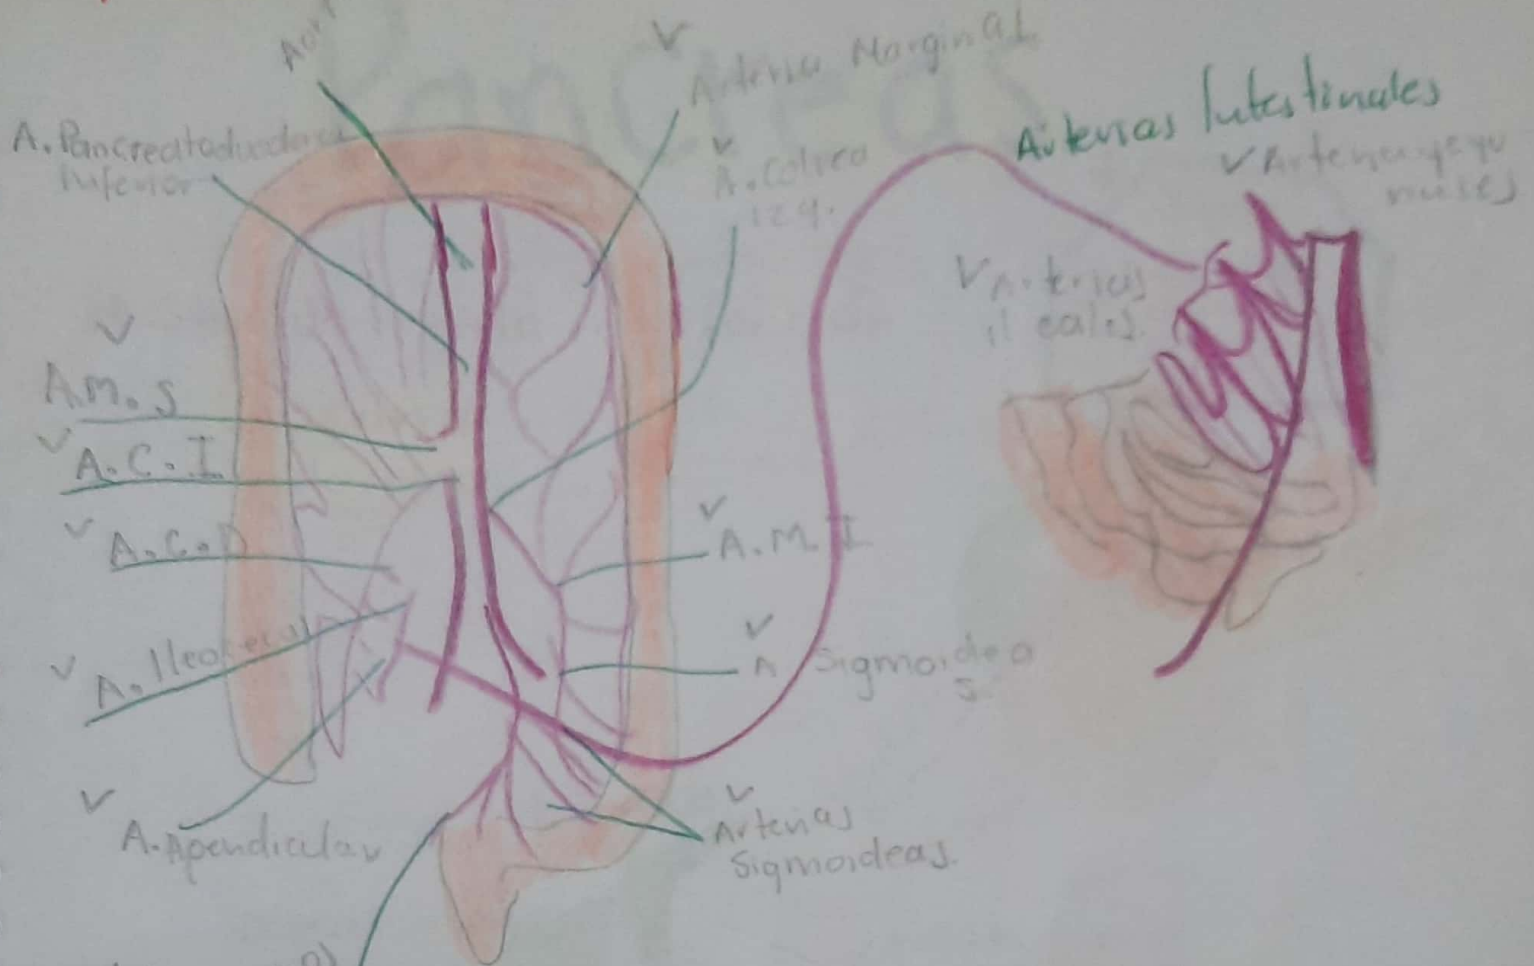 Arteria Marginal
A. Pancreatoduodenal
Inferior
A. Cólica
izq.
Arterias Intestinales
Arterias yeyu
nales
Arterias
ileales
A.M.S
A.C.I
A.C.D
A. Ileocecal
A. Apendicular
A.M.I
A. Sigmoidea
s.
Arterias
Sigmoideas.